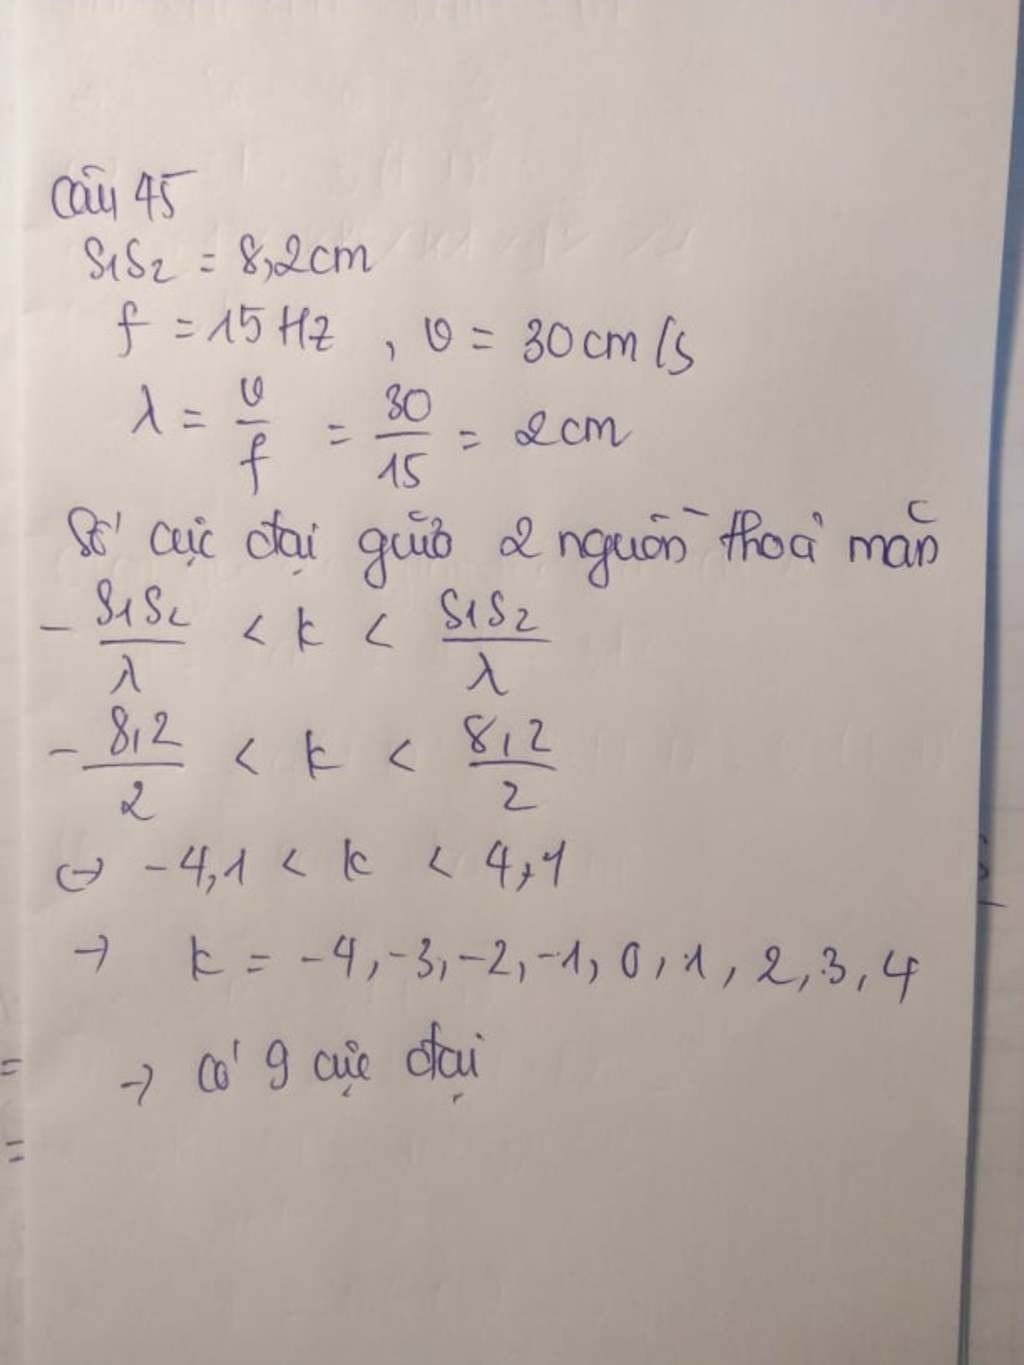 Câu 45
S1S2 = 8,2cm
f = 15 Hz , v = 30 cm/s
λ = v/f = 30/15 = 2cm
Số cực đại giữa 2 nguồn thoả mãn
- S1S2/λ < k < S1S2/λ
- 8,2/2 < k < 8,2/2
↔ -4,1 < k < 4,1
→ k = -4, -3, -2, -1, 0, 1, 2, 3, 4
→ có 9 cực đại
=
=